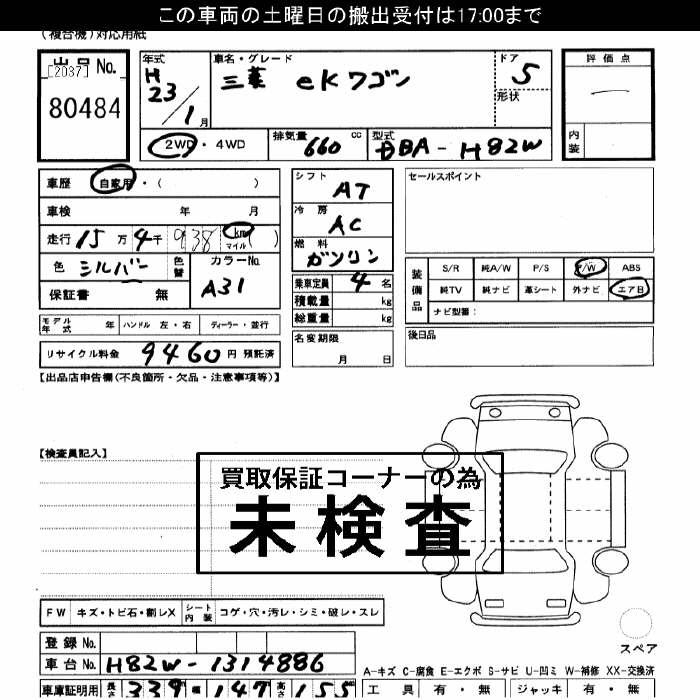 この車両の土曜日の搬出受付は17:00まで
(複合機)対応用紙
出品No.
[2037]
80484
年式
H
23
/1月
車名・グレード
三菱 eKワゴン
ドア
5
形状
評価点
内装
2WD・4WD
排気量 660 cc
型式 BBA-H82W
車歴 自家用・( )
車検 年 月
走行 15万4千938 km マイル ( )
色 シルバー 色替
カラーNo.
A31
保証書 無
シフト
AT
冷房
AC
燃料
ガソリン
乗車定員 4名
積載量 kg
総重量 kg
名変期限
月 日
セールスポイント
装備品
S/R 純A/W P/S P/W ABS
純TV 純ナビ 革シート 外ナビ エアB
ナビ型番:
後日品
モデル年式 年 ハンドル 左・右 ディーラー・並行
リサイクル料金 9460円 預託済
【出品店申告欄(不良箇所・欠品・注意事項等)】
【検査員記入】
買取保証コーナーの為
未検査
FW キズ・トビ石・割レX シート内装 コゲ・穴・汚レ・シミ・破レ・スレ
スペア
登録No.
車台No. H82W-1314886
A-キズ C-腐食 E-エクボ S-サビ U-凹ミ W-補修 XX-交換済
車庫証明用 長さ 339 147 高さ 155
工具 有・無 ジャッキ 有・無